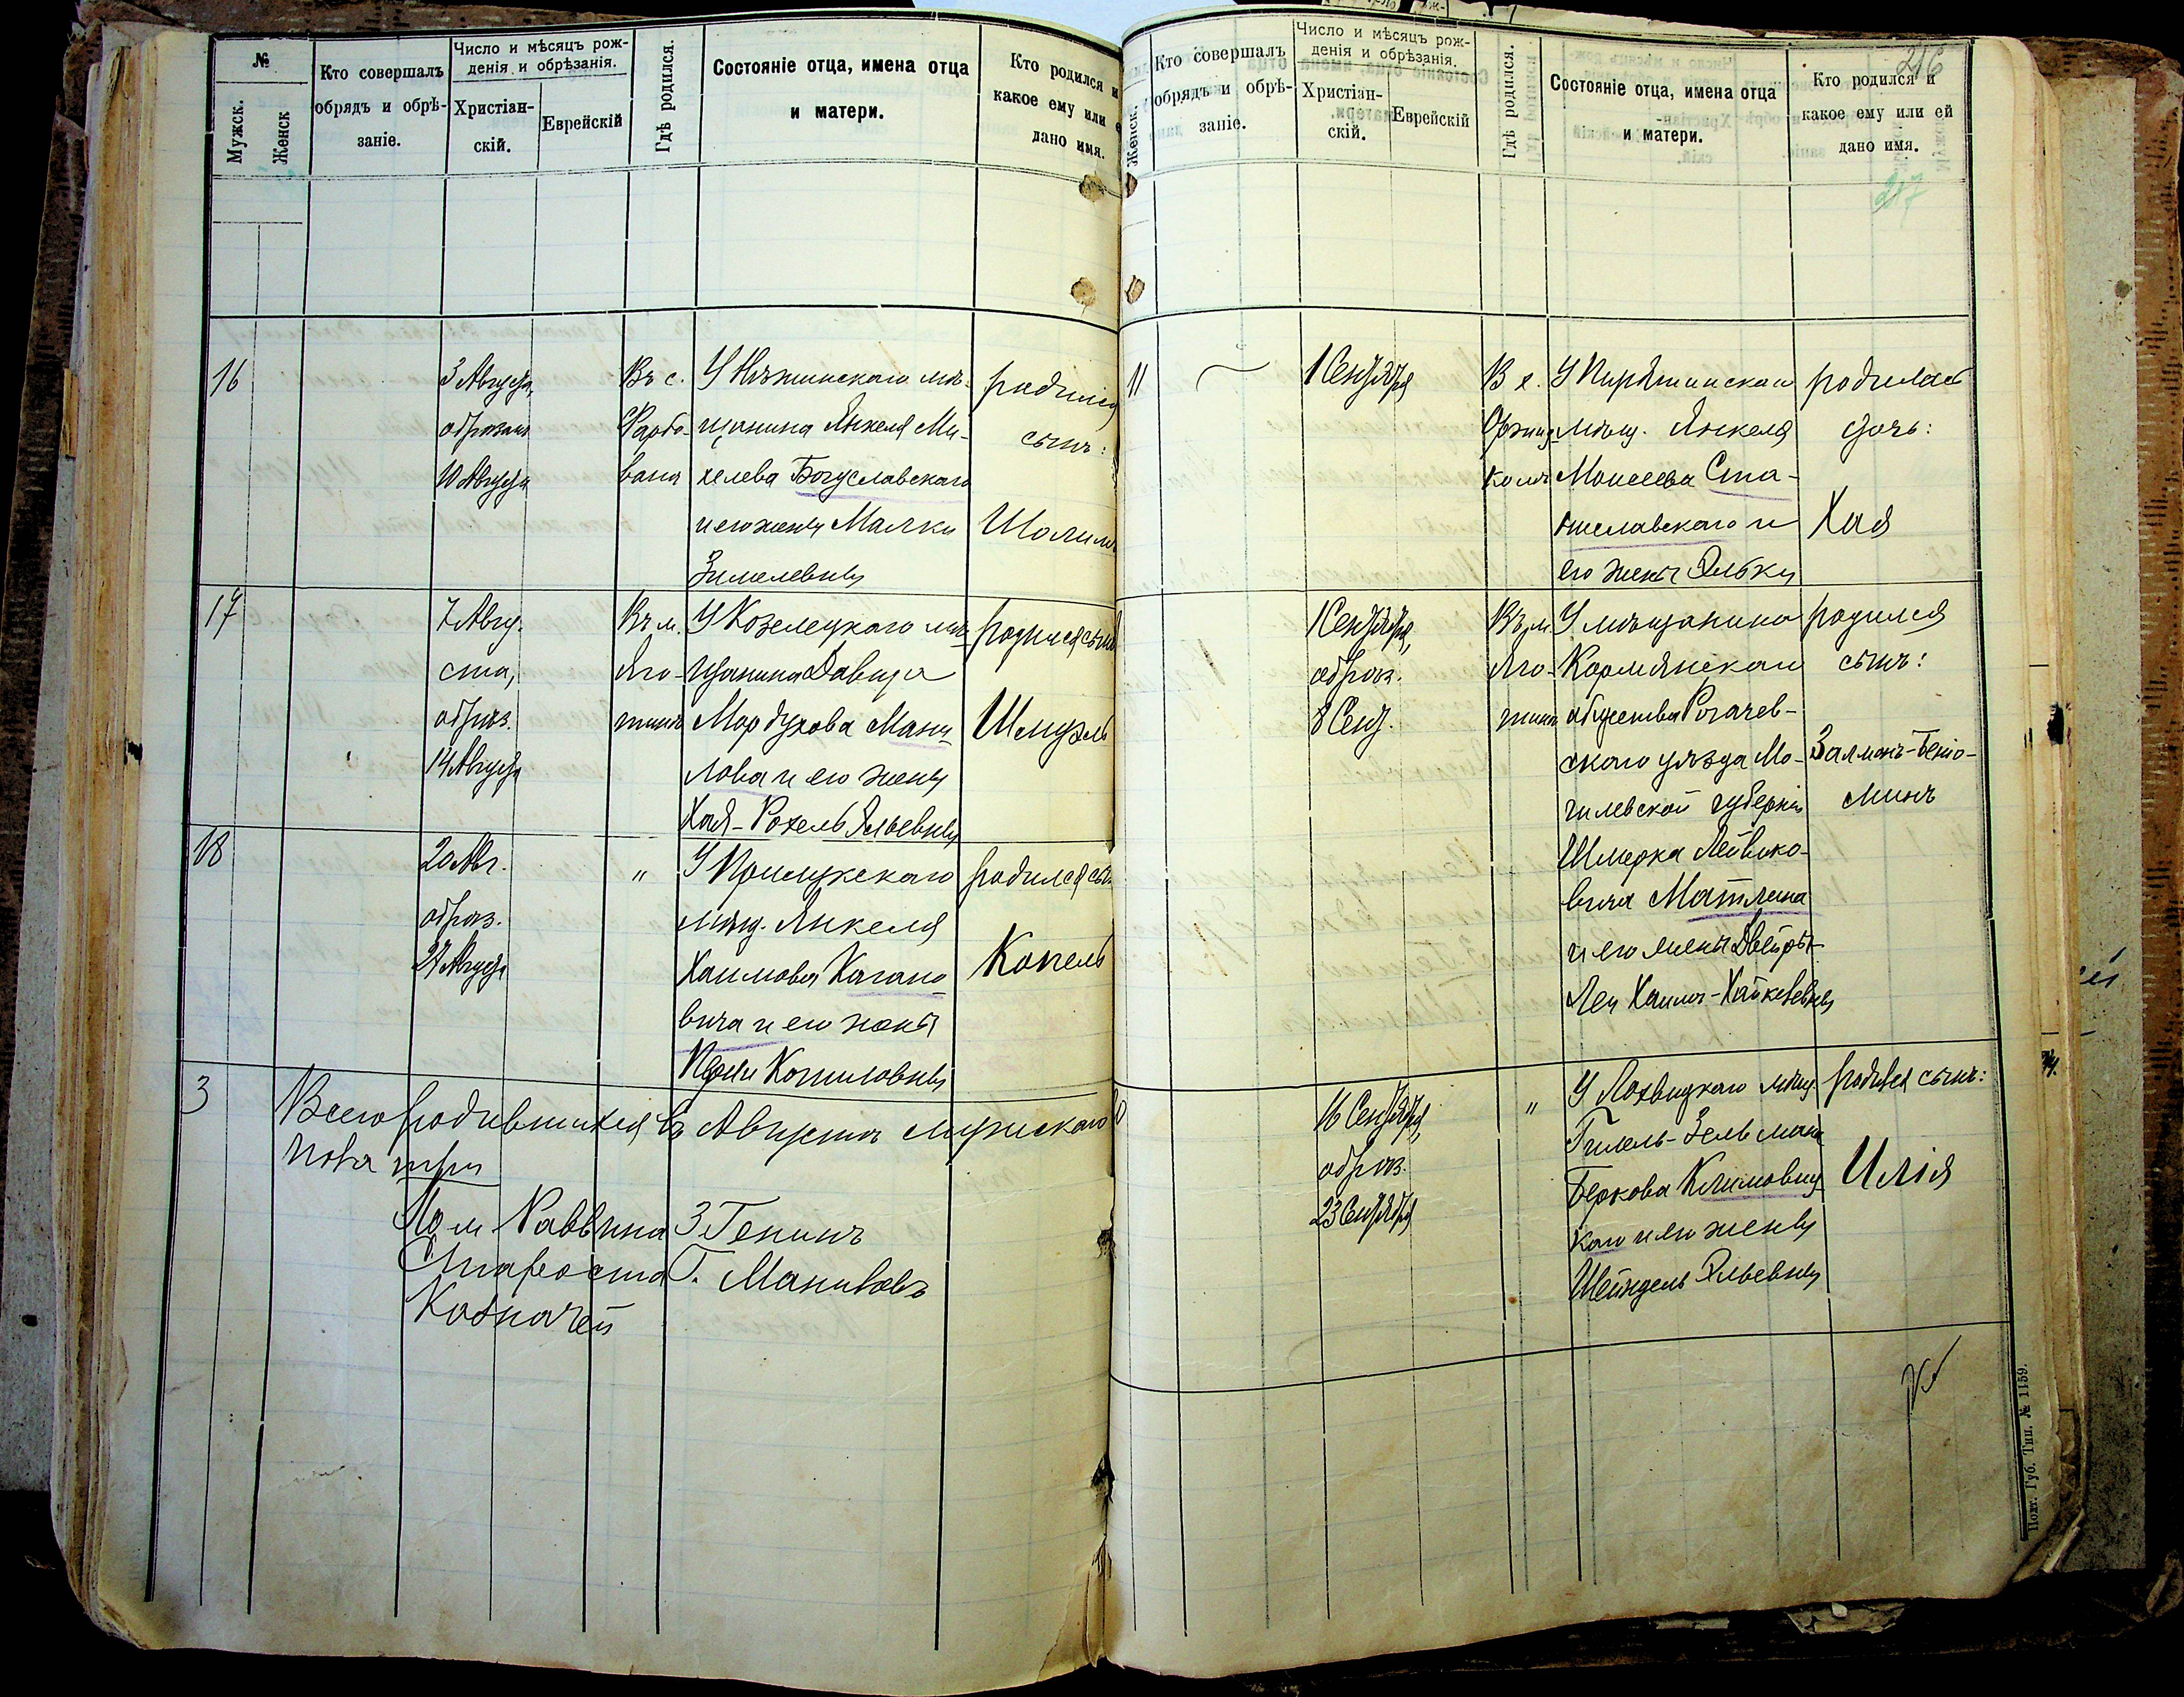 №
Мужск.
Женск
Кто совершалъ
обрядъ и обрѣ-
заніе.
Число и мѣсяцъ рож-
денія и обрѣзанія.
Христіан-
скій.
Еврейскій
Гдѣ родился.
Состояніе отца, имена отца
и матери.
Кто родился и
какое ему или е
дано имя.
16
3 Августа,
обрѣзанъ
10 Августа
Въ с.
Фарбо-
вана
У Нѣжинскаго мѣ-
щанина Янкеля Ми-
хелева Богуславскаго
и его жены Малки
Зимелевны
родился
сынъ:
Шолимъ
17
7 Авгу-
ста,
обрѣз.
14 Августа
Въ м.
Яго-
тинѣ
У Козелецкаго мѣ-
щанина Давида
Мордухова Мани-
лова и его жены
Хая-Рохель Эльевны
родился сынъ
Шмуэль
18
20 Авг.
обрѣз.
27 Августа
"
У Прилукскаго
мѣщ. Янкеля
Хаимова Кагано-
вича и его жены
Перли Копиловны
родился сын
Копель
3
Всего родившихся въ Августѣ мужескаго
пола три
Пом. Раввина З Генинъ
Староста Г. Маниловъ
Казначей
Женск.
Кто совершалъ
обрядъ и обрѣ-
заніе.
Число и мѣсяцъ рож-
денія и обрѣзанія.
Христіан-
скій.
Еврейскій
Гдѣ родился.
Состояніе отца, имена отца
и матери.
216
Кто родился и
какое ему или ей
дано имя.
217
11
1 Сентября
В х.
У Пирятинскаго
мѣщ. Янкеля
Моисеева Ста-
ниславскаго и
его жены Эльки
родилась
дочь:
Хая
1 Сентября,
обрѣз.
8 Сент.
Въ м.
Яго-
тинѣ
У мѣщанина
Кормянскаго
общества Рогачев-
скаго уѣзда Мо-
гилевской губерніи
Шмерка Лейвико-
вича Матлина
и его жены Двейры-
Леи Хаимъ-Хайкелевны
родился
сынъ:
Залманъ-Беніо-
минъ
16 Сентября,
обрѣз.
23 Сентября
"
У Лохвицкаго мѣщ.
Гилель-Зельмана
Беркова Климовиц-
каго и его жены
Шейндель Эльевны
родился сынъ:
Илія
Полт. Губ. Тип. № 1159.